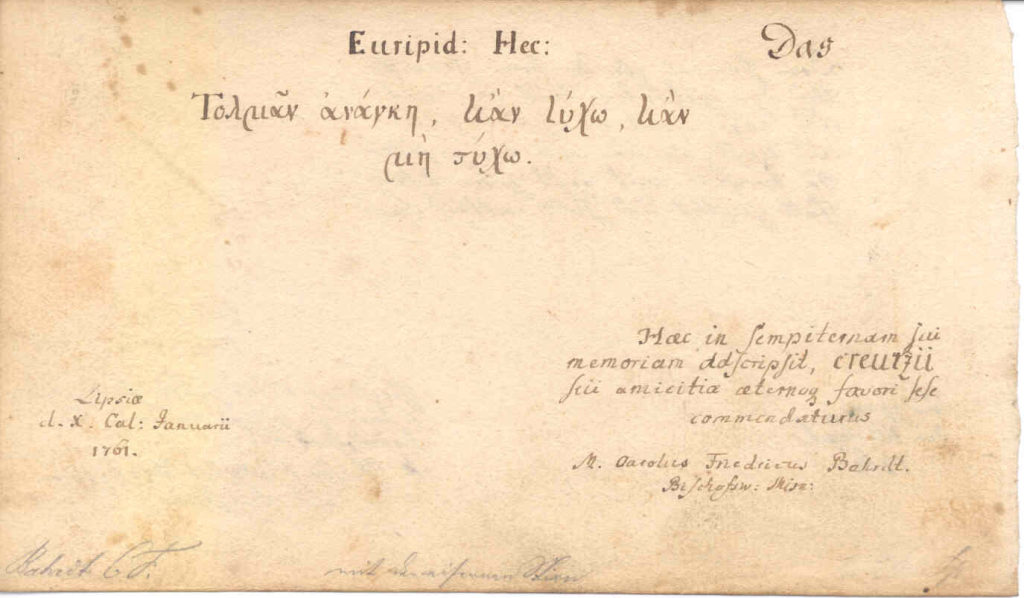 Euripid: Hec: Das
Τολμᾶν ἀνάγκη, κἂν τύχω, κἂν
μὴ τύχω.
Hæc in sempiternam sui
memoriam adscripsit, Creuzii
sui amicitiæ æternoq favori sese
commendaturus
Lipsiæ
d. X. Cal: Januarii
1761.
M. Carolus Fridricus Bahrdt.
Bischofsw: Misn:
Bahrdt C. F.
mit